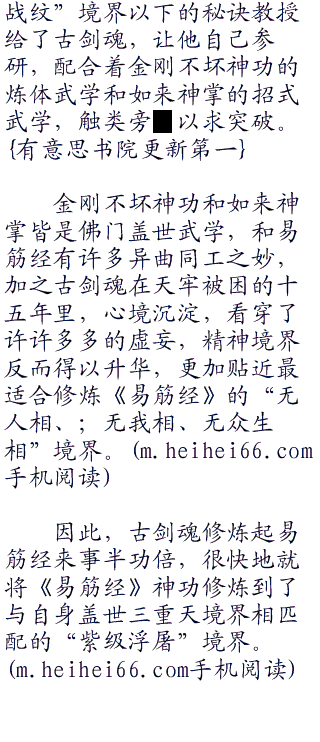 战纹”境界以下的秘诀教授
给了古剑魂，让他自己参
研，配合着金刚不坏神功的
炼体武学和如来神掌的招式
武学，触类旁 以求突破。
{有意思书院更新第一}
金刚不坏神功和如来神
掌皆是佛门盖世武学，和易
筋经有许多异曲同工之妙，
加之古剑魂在天牢被困的十
五年里，心境沉淀，看穿了
许许多多的虚妄，精神境界
反而得以升华，更加贴近最
适合修炼《易筋经》的“无
人相、；无我相、无众生
相”境界。(m.heihei66.com
手机阅读)
因此，古剑魂修炼起易
筋经来事半功倍，很快地就
将《易筋经》神功修炼到了
与自身盖世三重天境界相匹
配的“紫级浮屠”境界。
(m.heihei66.com手机阅读)